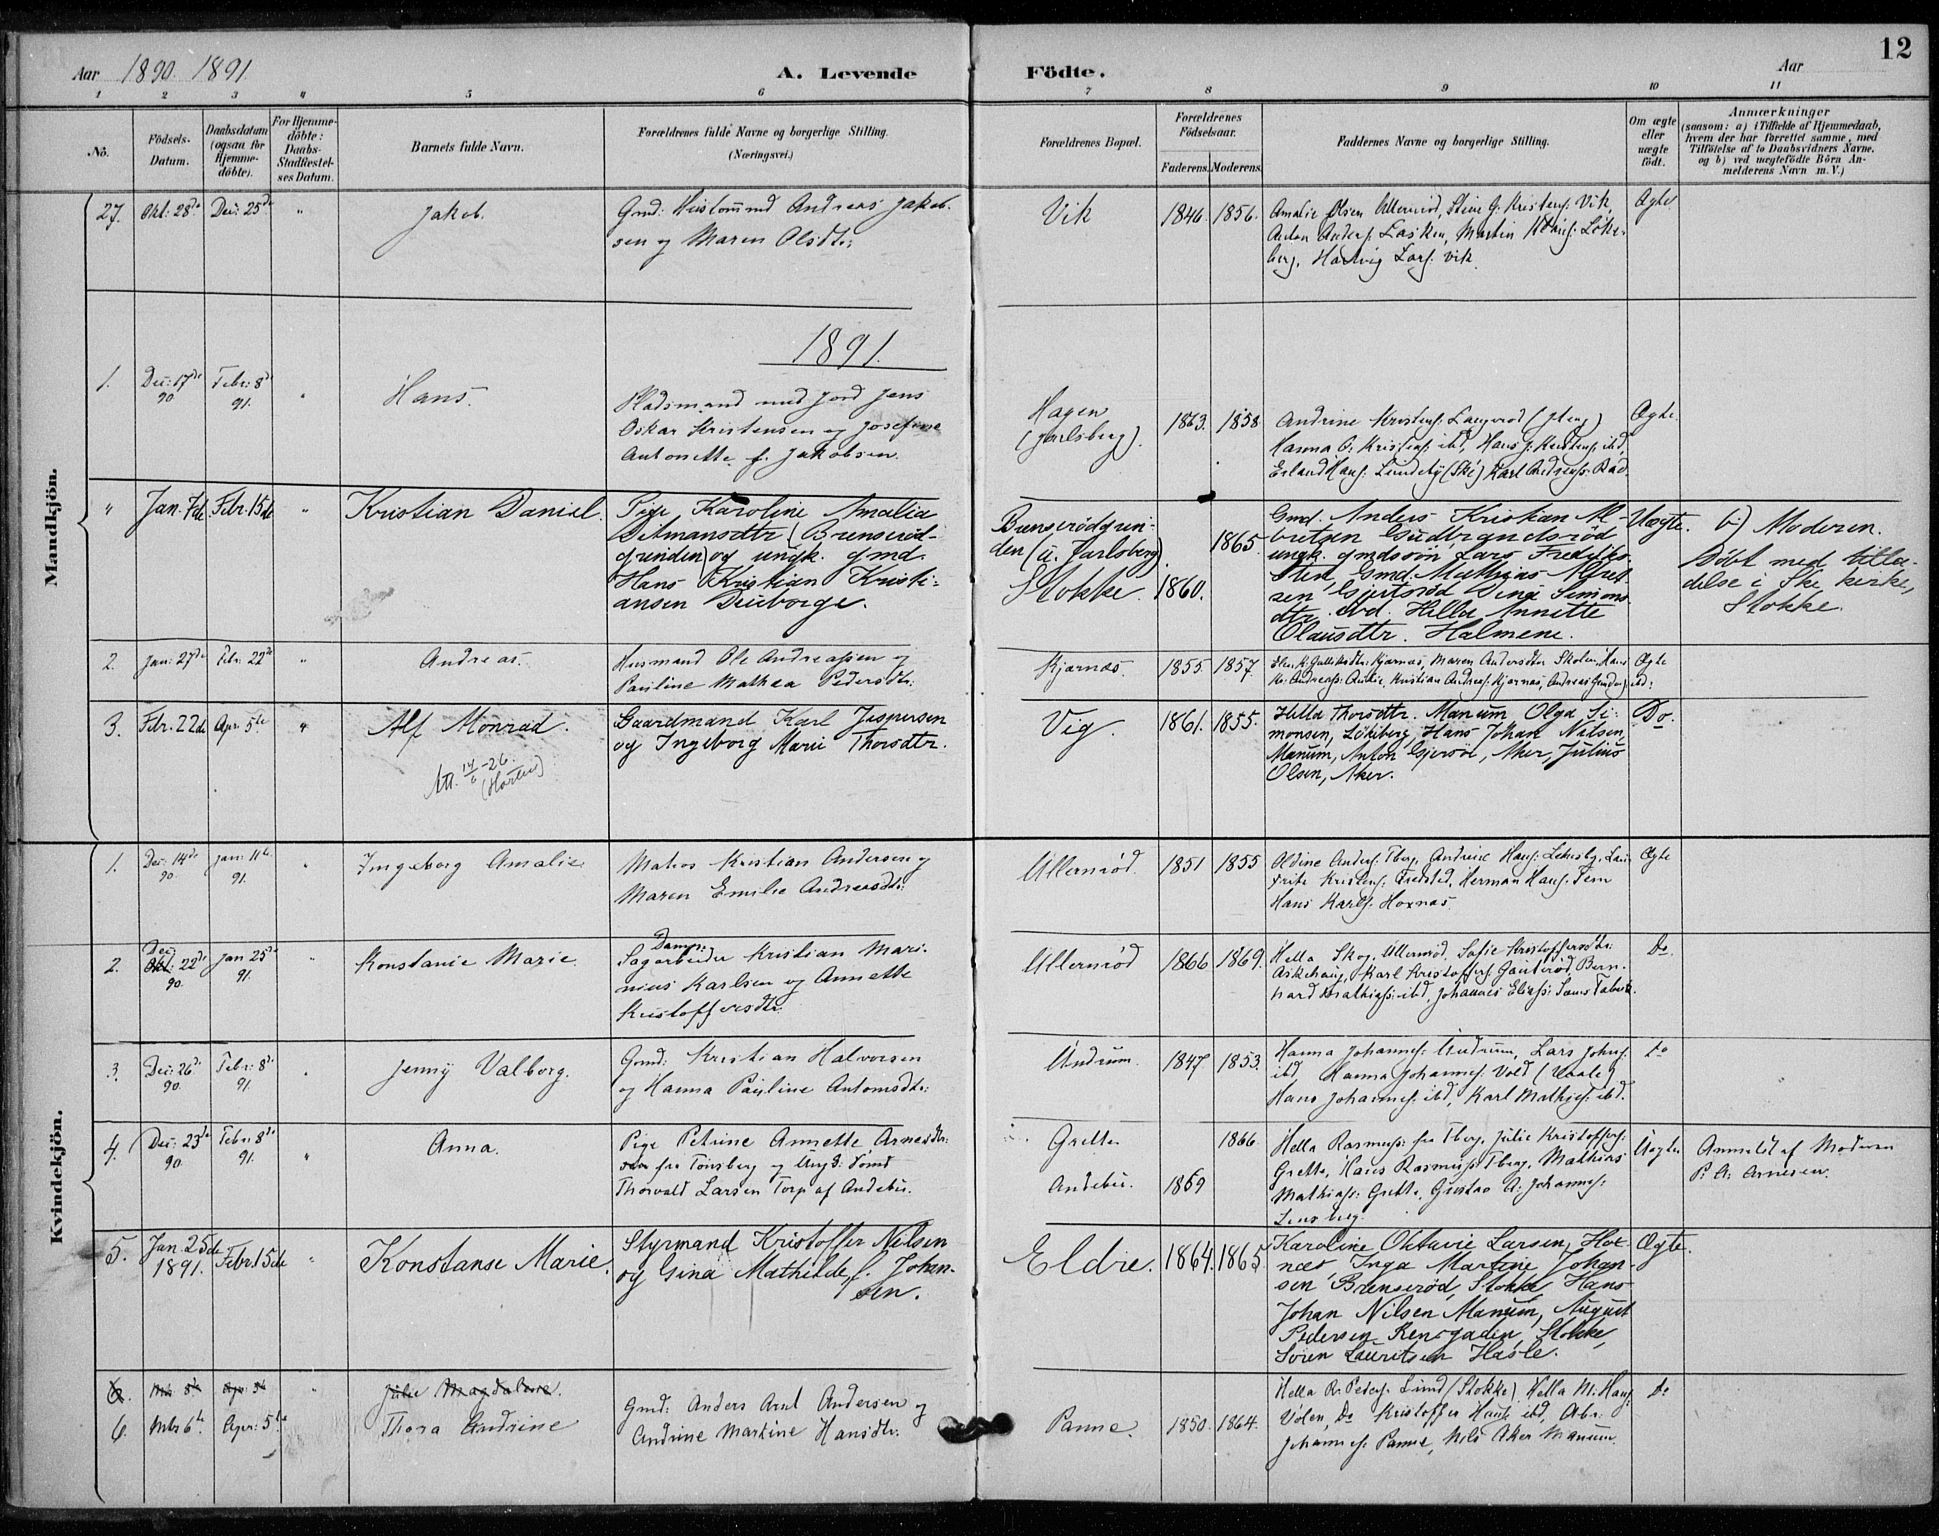 12
Aar 1890. 1891
A. Levende Födte.
Aar
1 2 3 4 5 6 7 8 9 10 11
No.
Födsels-
Datum.
Daabsdatum
(ogsaa for
Hjemme-
döbte).
For Hjemme-
döbte:
Daabs-
Stadfæstel-
ses Datum.
Barnets fulde Navn.
Forældrenes fulde Navne og borgerlige Stilling.
(Næringsvei.)
Forældrenes Bopæl.
Forældrenes
Födselsaar.
Faderens. Moderens.
Faddernes Navne og borgerlige Stilling.
Om ægte
eller
uægte
födt.
Anmærkninger
(saasom: a) i Tilfælde af Hjemmedaab,
hvem der har forrettet samme, med
Tilföielse af to Daabsvidners Navne,
og b) ved uægtefödte Börn An-
melderens Navn m. V.)
Mandkjön.
27. Okt: 28de Dec: 25de " Jakob.
Gmd: Andreas Jakob-
sen og Maren Olsdtr:
Vik 1846. 1856.
Amalie Olsen Ullernrød, Stine G. Kristens: Vik,
Anton Anders: Lasken, Martin Løke-
berg, Hartvig Lars: Vik.
Ægte
1891.
1. Dec: 17de 90 Febr: 8de 91. " Hans.
Pladsmand med Jord Jens
Oskar Kristensen og Josefine
Antonette f. Jakobsen.
Hagen
(Jarlsberg).
1863. 1858
Andrine Kristens: Langerød
Hanna O. Kristens: ibd, Hans J. Kristens: ibd,
Erland Hans: Lundeby (Ske) Karl Andreas:
Ægte
" Jan. 7de Febr. 15de " Kristian Daniel.
Pige Karoline Amalia
Ditmansdtr (Brenserød-
grinden) og ungk. gmd.
Hans Kristian Kristi-
ansen Dueborge.
Brenserødgrin-
den (u. Jarlsberg).
Stokke 1860. 1865.
Gmd. Anders Kristian Al-
bretsen Gudbrandsrød
ungk. gmdssøn Lars Fredrik
Gmd. Mathias Alfret
sen Gjertsrød Dina Simons-
dtr. ibd. Hella Annette
Olausdtr. Halmene.
Uægte. b) Moderen.
Døbt med tilla-
delse i Ske kirke,
Stokke.
2. Jan: 27de Febr: 22de " Andreas.
Husmand Ole Andreassen og
Pauline Mathea Pedersdtr:
Kjærnæs. 1855. 1857.
Kjærnæs, Maren Andersdtr: Skolen, Hans
Kristian Andreas: Kjærnæs, Andreas ibd:
Ægte
3. Febr. 22de Apr. 5te " Alf Monrad.
Att. 14/6 -26. (Horten)
Gaardmand Karl Jespersen
og Ingeborg Marie Thorsdtr.
Vig. 1861. 1855.
Hella Thorsdtr. Manum Olga Si-
monsen, Løkeberg, Hans Johan Nilsen,
Manum, Anton Gjersøe, Aker, Julius
Olsen, Aker.
Do.
Kvindekjön.
1. Dec: 14de 90. Jan: 11te 91. " Ingeborg Amalie.
Matros Kristian Andersen og
Maren Emilie Andreasdtr:
Ullernrød. 1851 1855
Oldine Anders: Tberg, Andrine Hans: Lekesbg, Lars
Fritz Kristens: Fredsted, Herman Hans: Fem
Hans Karls: Hoxnæs.
Ægte
2. Dec: 22de 90. Jan 25de 91. " Konstanse Marie.
Damp:
Sagarbeider Kristian Mari-
nius Karlsen og Annette
Kristoffersdtr.
Ullernrød 1866 1869.
Hella Skog, Ullernrød, Sofie Kristoffersdtr:
Askehaug, Karl Kristoffers: Gauterød, Bern-
hard Mathias: ibd, Johannes Elias:
Do.
3. Dec: 26de 90. Febr: 8de 91. " Jenny Valborg.
Gmd: Kristian Halvorsen
og Hanna Pauline Antonsdtr:
Undrum. 1847 1853.
Hanna Johannes: Undrum, Lars Johns:
ibd, Hanna Johannes: Vold (Vaale)
Hans Johannes: ibd, Karl Mathis: ibd.
Do
4. Dec: 23de 90. Febr: 8de 91. " Anna.
Pige Petrine Annette Arnesdtr:
fra Tönsberg og Ungk: Sömd
Thorvald Larsen Torp af Andebu.
Grette
Andebu. 1869 1866
Hella Rasmus: fra Tberg, Julie Kristoffers:
Grette, Hans Rasmus: Tberg, Mathias
Mathias: Grette, Gustav A: Johannes:
Uægte Anmeldt af Moderen
P. A. Arnesen.
5. Jan. 25de 1891. Febr. 15de " Konstanse Marie.
Styrmand Kristoffer Nilsen
og Gina Mathilde f. Johan-
sen.
Eldre. 1864. 1865
Karoline Oktavie Larsen, Hox-
næs Inga Martine Johan-
sen Brenserød, Stokke Hans
Johan Nilsen Manum, August
Pedersen Rensgaden Stokke,
Søren Lauritsen Hasle.
Ægte.
6. Mts 8de Apr 5te " Julie Magdalene.
6. Mts 6te Apr: 5te Thora Andrine
Gmd: Anders Arnt Andersen og
Andrine Martine Hansdtr:
Panne. 1850. 1864.
Hella R. Peders: Lund (Stokke) Hella M: Hans:
Volen, Do Kristoffer Hans: ibd, Abr:
Johannes: Panne, Nils Aker Manum.
Do